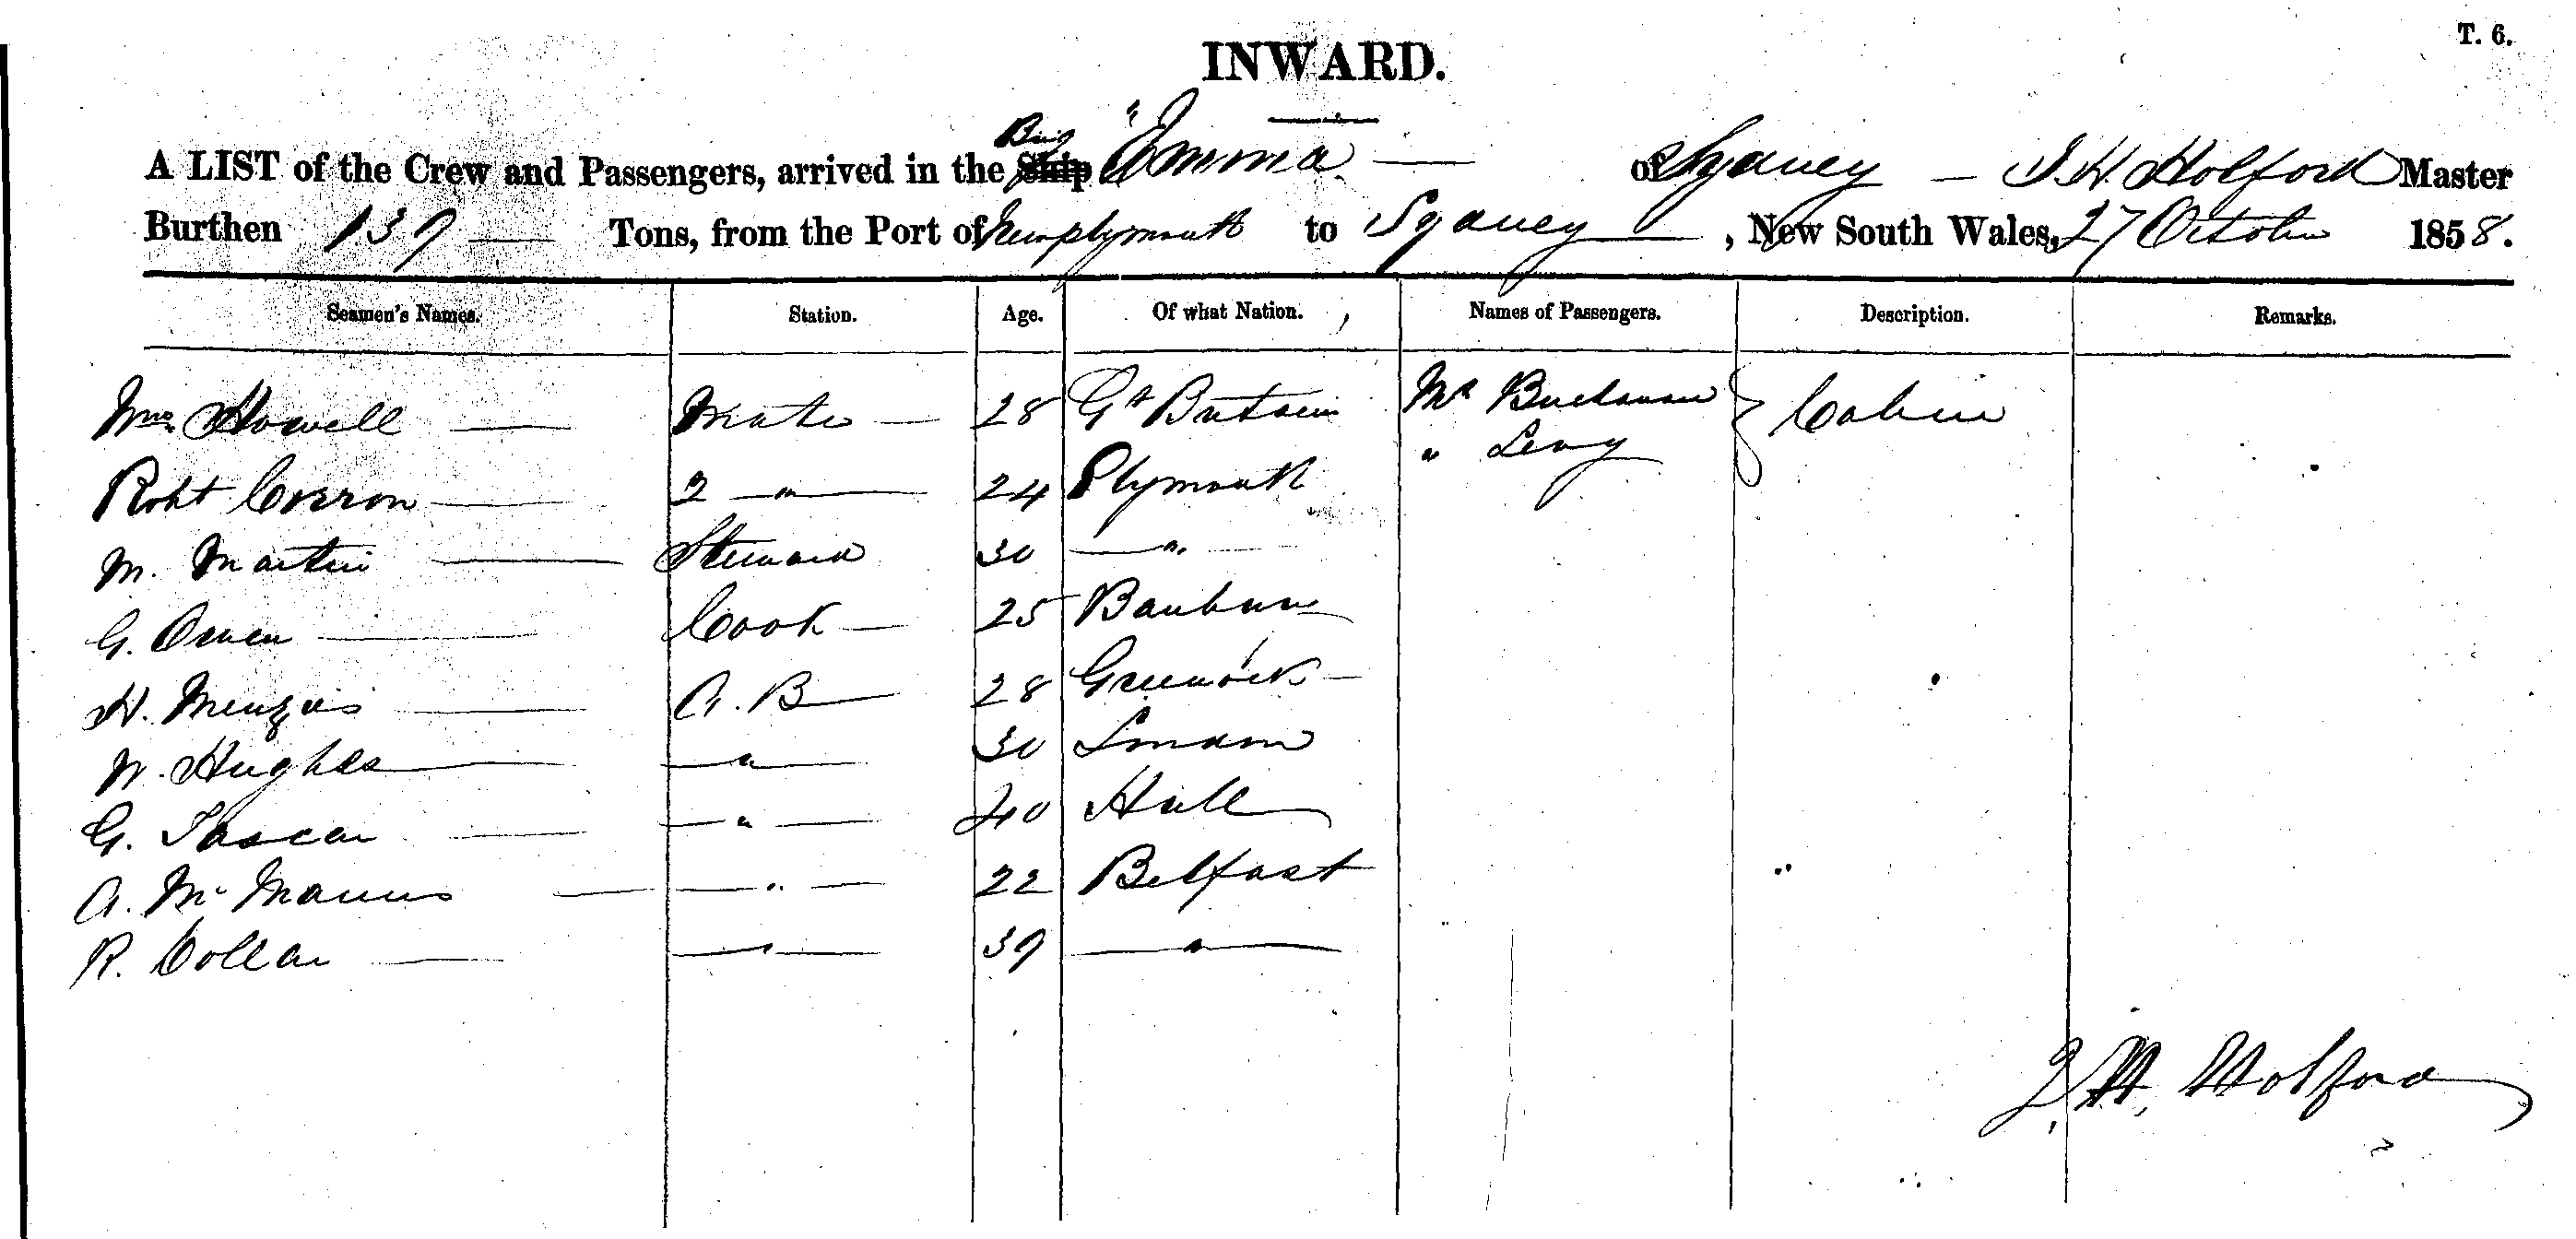 T. 6.
INWARD.
A LIST of the Crew and Passengers, arrived in the Ship Brig "Emma — of Sydney — J H. Holford Master
Burthen 139 — Tons, from the Port of Newplymouth to Sydney — , New South Wales, 27 October 1858.
Seamen's Names. Station. Age. Of what Nation. Names of Passengers. Description. Remarks.
Wm Howell — Mate — 28 Gt Britain Mr Buchanan Cabin
" Levy
Robt — 2 — " — 24 Plymouth
M. Martin — Steward 30 — " —
G. Owen — Cook — 25
H. Menzies — A. B — 28 Greenock —
W. Hughes — — " — 30 London
G. — — " — 40 Hull
A. Mc Manus — — " — 22 Belfast
R. Collar — — " — 39 — " —
J. H. Holford